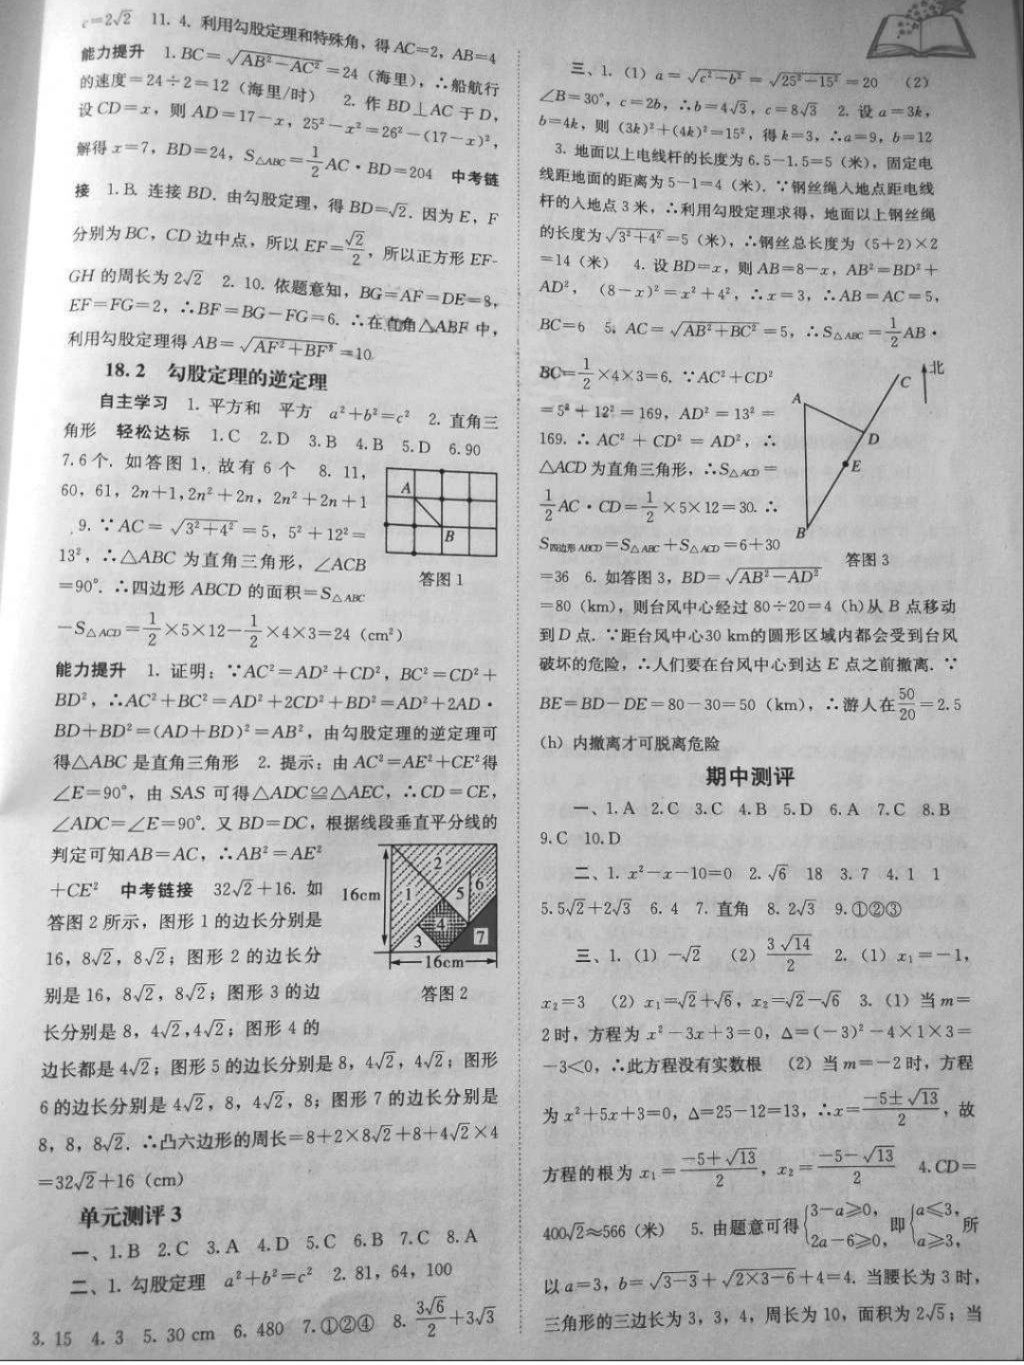 c=2√2 11. 4. 利用勾股定理和特殊角, 得 AC=2, AB=4
能力提升 1. BC=√(AB²-AC²)=24 (海里), ∴船航行
的速度=24÷2=12 (海里/时) 2. 作 BD⊥AC 于 D,
设 CD=x, 则 AD=17-x, 25²-x²=26²-(17-x)²,
解得 x=7, BD=24, S△ABC=1/2 AC·BD=204 中考链
接 1. B. 连接 BD. 由勾股定理, 得 BD=√2. 因为 E, F
分别为 BC, CD 边中点, 所以 EF=√2/2, 所以正方形 EF-
GH 的周长为 2√2 2. 10. 依题意知, BG=AF=DE=8,
EF=FG=2, ∴BF=BG-FG=6. ∴在直角△ABF 中,
利用勾股定理得 AB=√(AF²+BF²)=10
18.2 勾股定理的逆定理
自主学习 1. 平方和 平方 a²+b²=c² 2. 直角三
角形 轻松达标 1.C 2.D 3.B 4.B 5.D 6.90
7. 6 个. 如答图 1, 故有 6 个 8. 11,
60, 61, 2n+1, 2n²+2n, 2n²+2n+1
9. ∵AC=√(3²+4²)=5, 5²+12²=
13², ∴△ABC 为直角三角形, ∠ACB
=90°. ∴四边形 ABCD 的面积=S△ABC
A
B
答图 1
-S△ACD=1/2×5×12-1/2×4×3=24 (cm²)
能力提升 1. 证明: ∵AC²=AD²+CD², BC²=CD²+
BD², ∴AC²+BC²=AD²+2CD²+BD²=AD²+2AD·
BD+BD²=(AD+BD)²=AB², 由勾股定理的逆定理可
得△ABC 是直角三角形 2. 提示: 由 AC²=AE²+CE²得
∠E=90°, 由 SAS 可得△ADC≌△AEC, ∴CD=CE,
∠ADC=∠E=90°. 又 BD=DC, 根据线段垂直平分线的
判定可知AB=AC, ∴AB²=AE²
+CE² 中考链接 32√2+16. 如
答图 2 所示, 图形 1 的边长分别是
16, 8√2, 8√2; 图形 2 的边长分
别是 16, 8√2, 8√2; 图形 3 的边
长分别是 8, 4√2, 4√2; 图形 4 的
16cm
1
2
3
4
5
6
7
16cm
答图 2
边长都是 4√2; 图形 5 的边长分别是 8, 4√2, 4√2; 图形
6 的边长分别是 4√2, 8, 4√2, 8; 图形 7 的边长分别是
8, 8, 8√2. ∴凸六边形的周长=8+2×8√2+8+4√2×4
=32√2+16 (cm)
单元测评 3
一、1. B 2. C 3. A 4. D 5. C 6. B 7. C 8. A
二、1. 勾股定理 a²+b²=c² 2. 81, 64, 100
3. 15 4. 3 5. 30 cm 6. 480 7. ①②④ 8. 3√6/2+3√3
三、1. (1) a=√(c²-b²)=√(25²-15²)=20 (2)
∠B=30°, c=2b, ∴b=4√3, c=8√3 2. 设 a=3k,
b=4k, 则 (3k)²+(4k)²=15², 得 k=3, ∴a=9, b=12
3. 地面以上电线杆的长度为 6.5-1.5=5 (米), 固定电
线距地面的距离为 5-1=4 (米). ∵钢丝绳入地点距电线
杆的入地点 3 米, ∴利用勾股定理求得, 地面以上钢丝绳
的长度为√(3²+4²)=5 (米), ∴钢丝总长度为 (5+2)×2
=14 (米) 4. 设 BD=x, 则 AB=8-x, AB²=BD²+
AD², (8-x)²=x²+4², ∴x=3, ∴AB=AC=5,
BC=6 5. AC=√(AB²+BC²)=5, ∴S△ABC=1/2 AB·
BC=1/2×4×3=6. ∵AC²+CD²
=5²+12²=169, AD²=13²=
169. ∴AC²+CD²=AD², ∴
△ACD 为直角三角形, ∴S△ACD=
1/2 AC·CD=1/2×5×12=30. ∴
S四边形ABCD=S△ABC+S△ACD=6+30
北
C
A
D
E
B
答图 3
=36 6. 如答图 3, BD=√(AB²-AD²)
=80 (km), 则台风中心经过 80÷20=4 (h)从 B 点移动
到 D 点. ∵距台风中心30 km的圆形区域内都会受到台风
破坏的危险, ∴人们要在台风中心到达 E 点之前撤离. ∵
BE=BD-DE=80-30=50 (km), ∴游人在50/20=2.5
(h) 内撤离才可脱离危险
期中测评
一、1. A 2. C 3. C 4. B 5. D 6. A 7. C 8. B
9. C 10. D
二、1. x²-x-10=0 2. √6 18 3. 7 4. 1 1
5. 5√2+2√3 6. 4 7. 直角 8. 2√3 9. ①②③
三、1. (1) -√2 (2) 3√14/2 2. (1) x₁=-1,
x₂=3 (2) x₁=√2+√6, x₂=√2-√6 3. (1) 当 m=
2 时, 方程为 x²-3x+3=0, Δ=(-3)²-4×1×3=
-3<0, ∴此方程没有实数根 (2) 当 m=-2 时, 方程
为 x²+5x+3=0, Δ=25-12=13, ∴x=(-5±√13)/2, 故
方程的根为 x₁=(-5+√13)/2, x₂=(-5-√13)/2 4. CD=
400√2≈566 (米) 5. 由题意可得{3-a≥0, 2a-6≥0, 即{a≤3, a≥3, 所
以 a=3, b=√(3-3)+√(2×3-6)+4=4. 当腰长为 3 时,
三角形的三边长为 3, 3, 4, 周长为 10, 面积为 2√5; 当